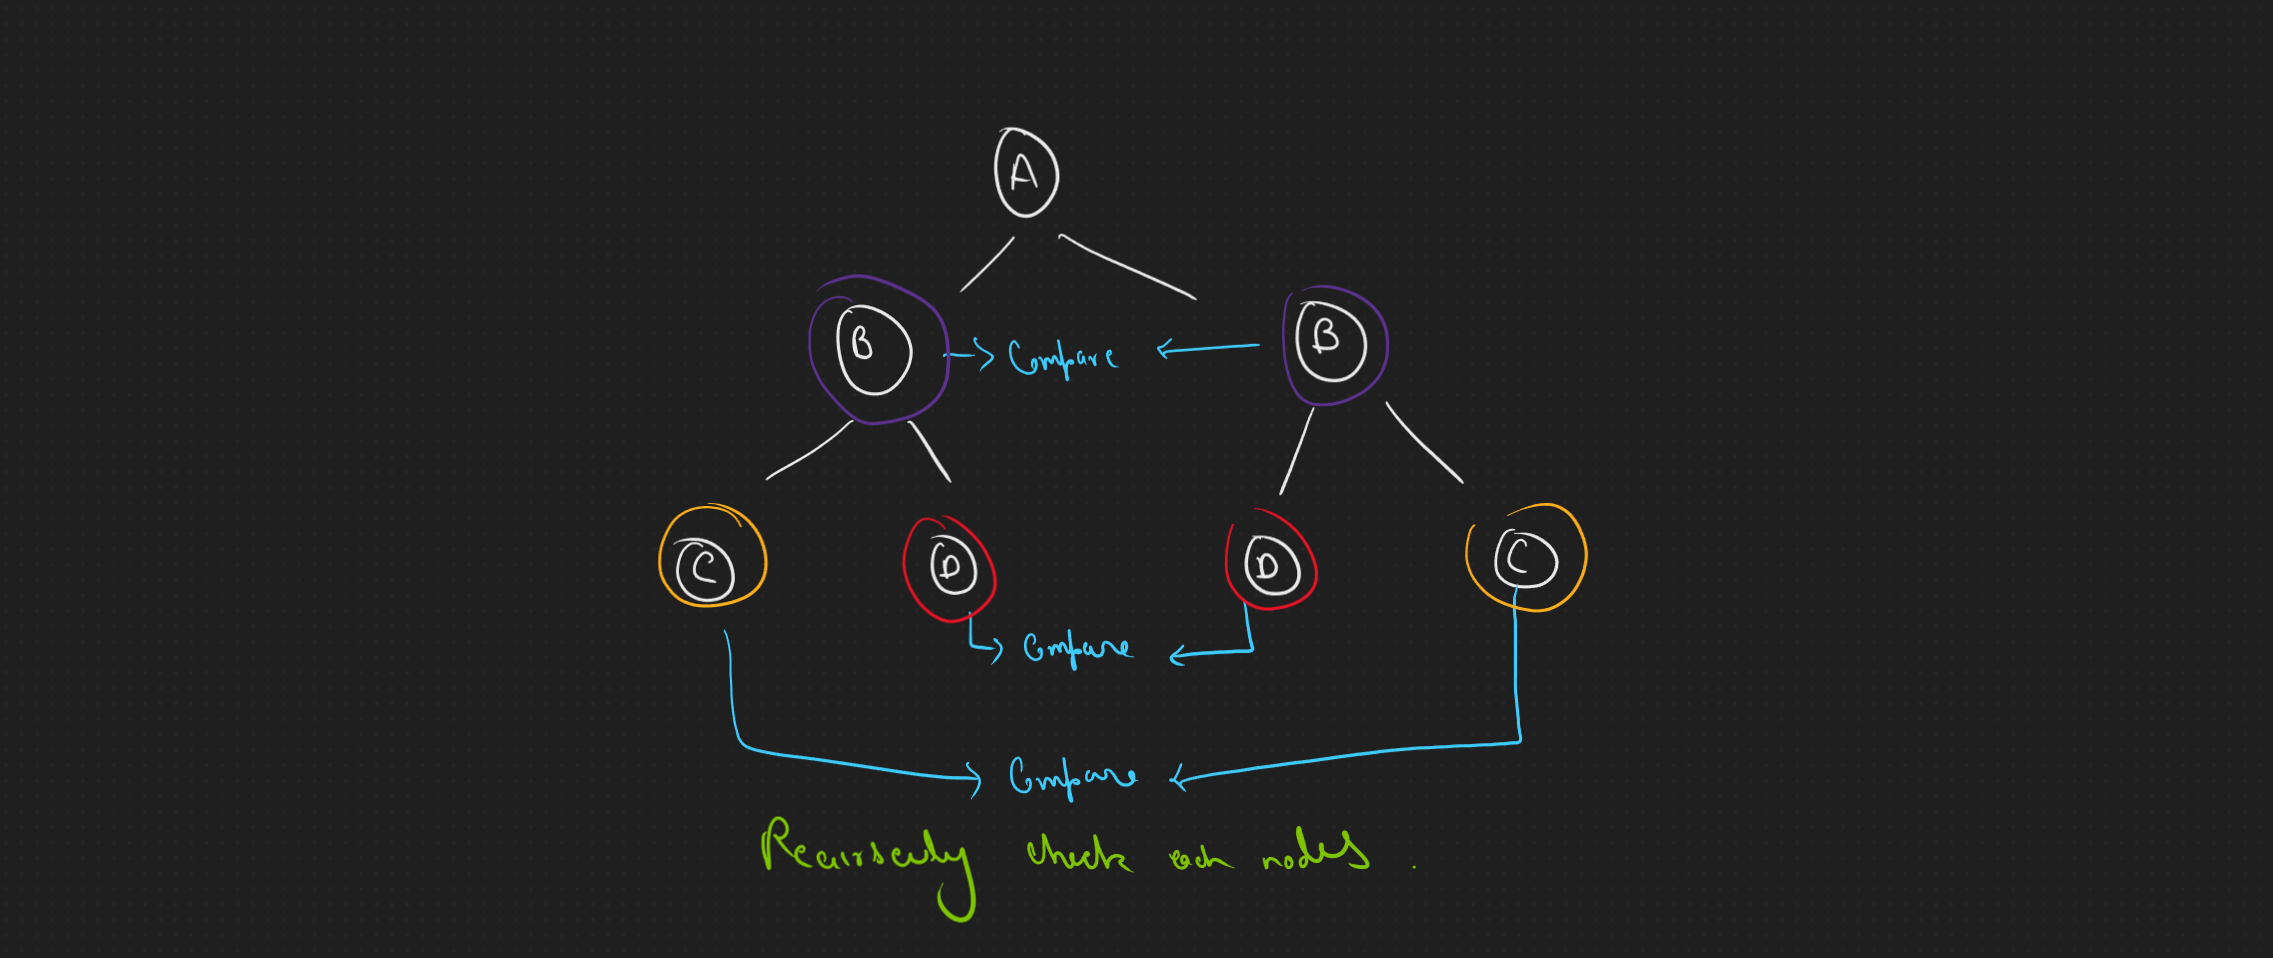 A
B → Compare ← B
C D D C
Compare
Compare
Recursively check each nodes .